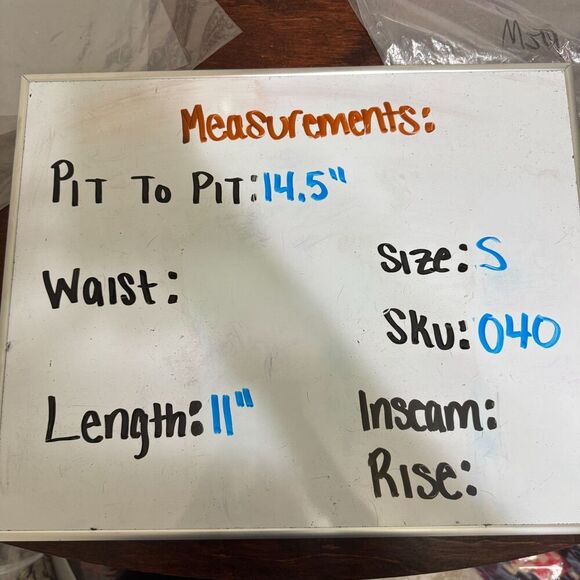 Measurements:
PIT TO PIT: 14.5"
Waist:
Size: S
SKU: 040
Length: 11"
Inseam:
Rise: